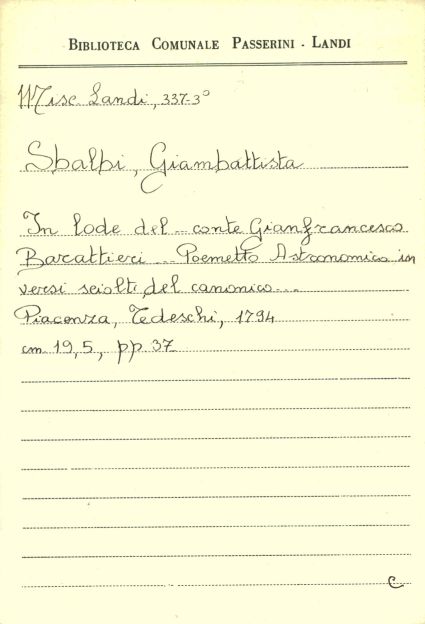 BIBLIOTECA COMUNALE PASSERINI - LANDI
Misc Landi, 337-3°
Sbalbi, Giambattista
In lode del .. conte Gianfrancesco
Barattieri ... Poemetto Astronomico in
versi sciolti del canonico...
Piacenza, Tedeschi, 1794
cm 19,5, pp 37
C